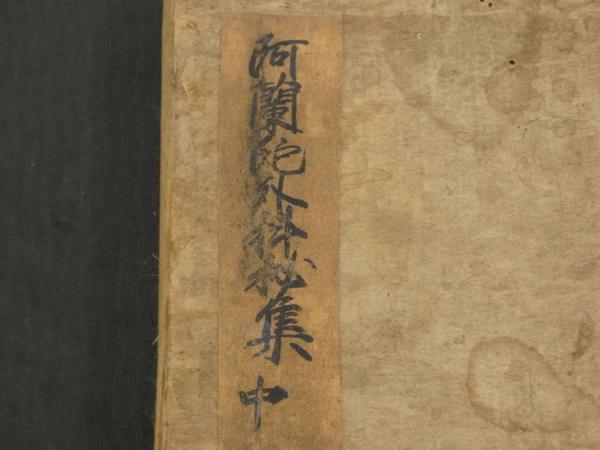 阿蘭陀外科秘集 中